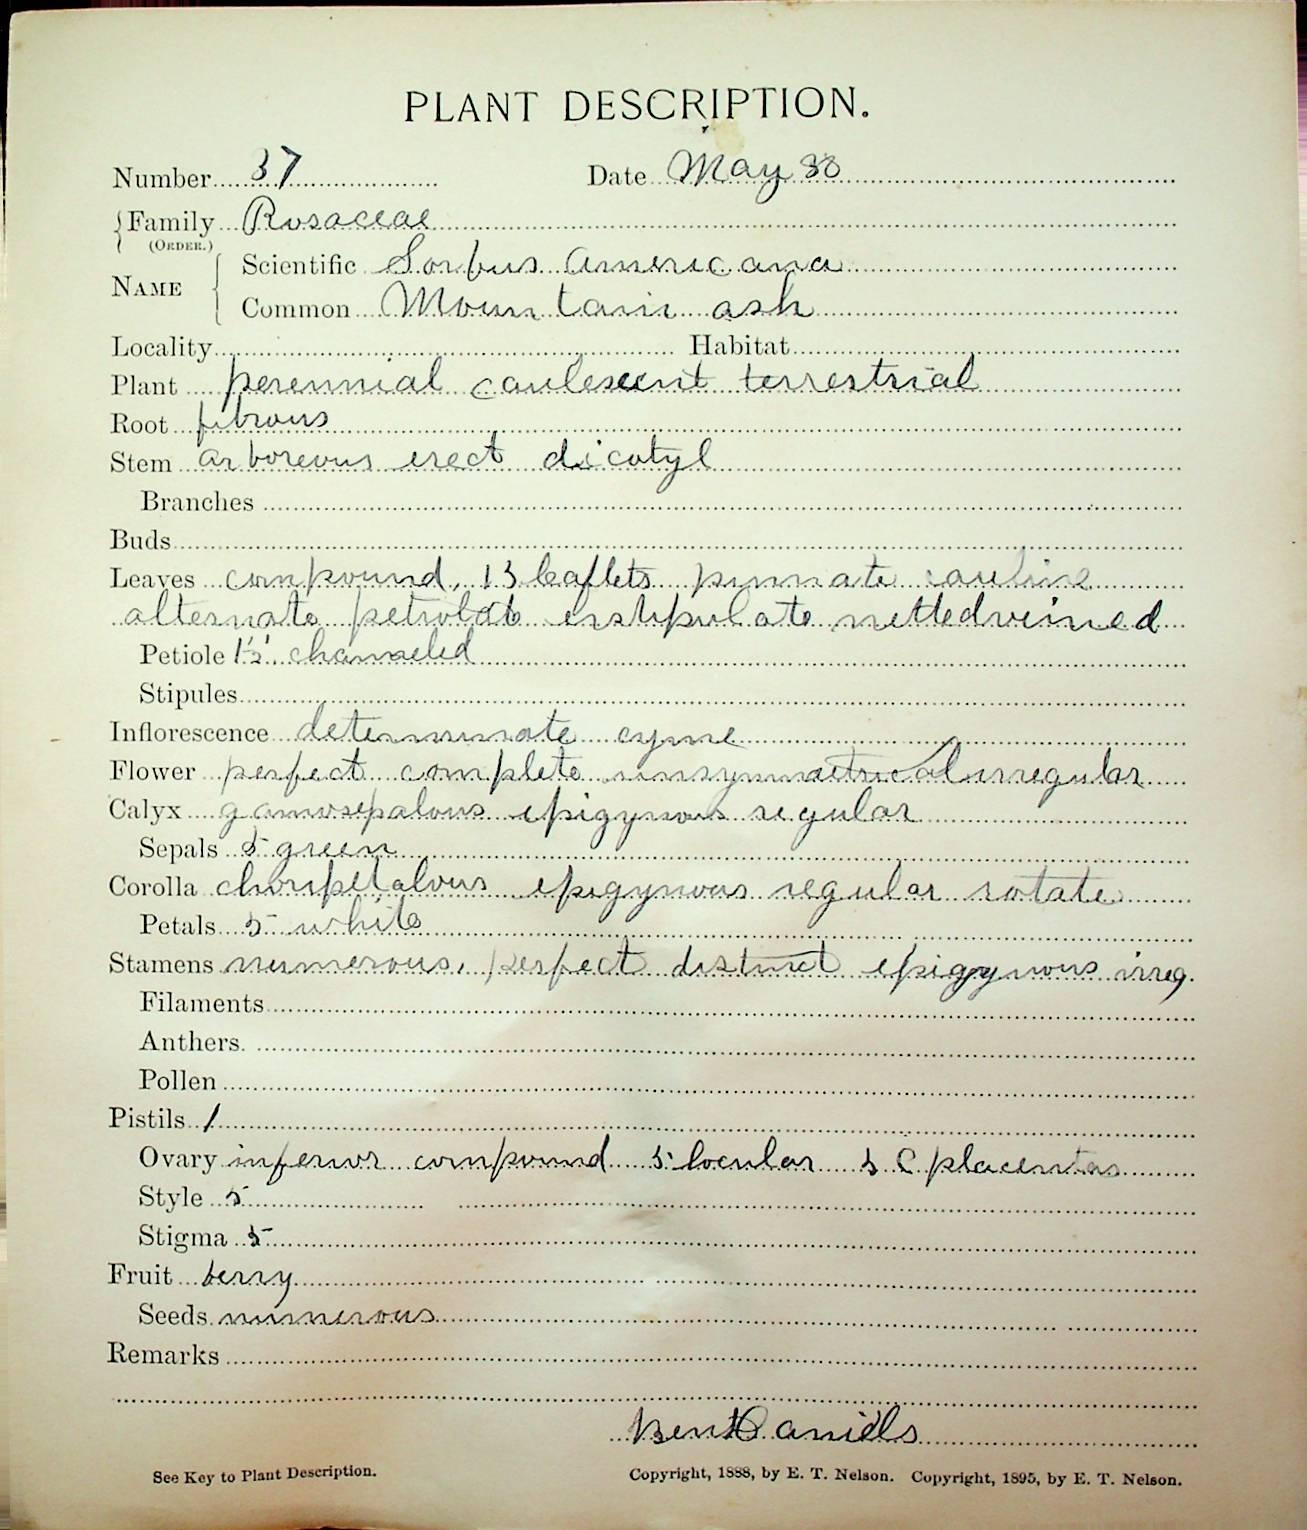 PLANT DESCRIPTION.
Number 37 Date May 30
{Family Rosaceae
(ORDER.)
NAME { Scientific Sorbus americana
Common Mountain ash
Locality Habitat
Plant perennial caulescent terrestrial
Root fibrous
Stem arboreous erect dicotyl
Branches
Buds
Leaves compound, 13 leaflets pinnate cauline
alternate petiolate exstipulate nettedveined
Petiole 1½" channeled
Stipules
Inflorescence determinate cyme
Flower perfect complete unsymmetrical irregular
Calyx gamosepalous epigynous regular
Sepals 5 green
Corolla choripetalous epigynous regular rotate
Petals 5 white
Stamens numerous, perfect distinct epigynous irreg.
Filaments
Anthers.
Pollen
Pistils 1
Ovary inferior compound 5 locular 5 C placentas
Style 5
Stigma 5
Fruit berry
Seeds numerous
Remarks
Daniels
See Key to Plant Description. Copyright, 1888, by E. T. Nelson. Copyright, 1895, by E. T. Nelson.